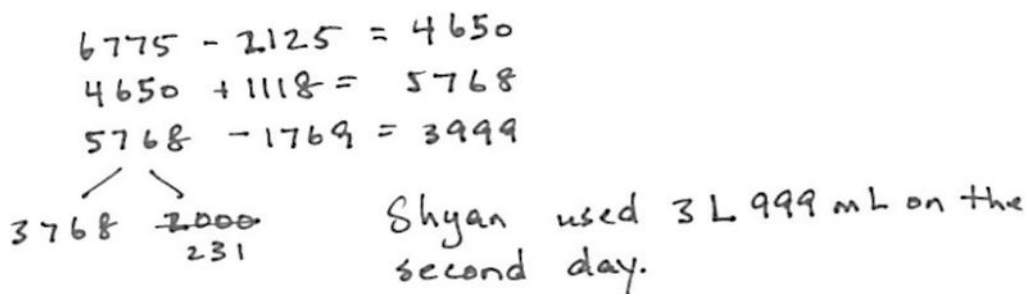 6775 - 2125 = 4650
4650 + 1118 = 5768
5768 - 1769 = 3999
3768 2000
231
Shyan used 3 L 999 mL on the
second day.